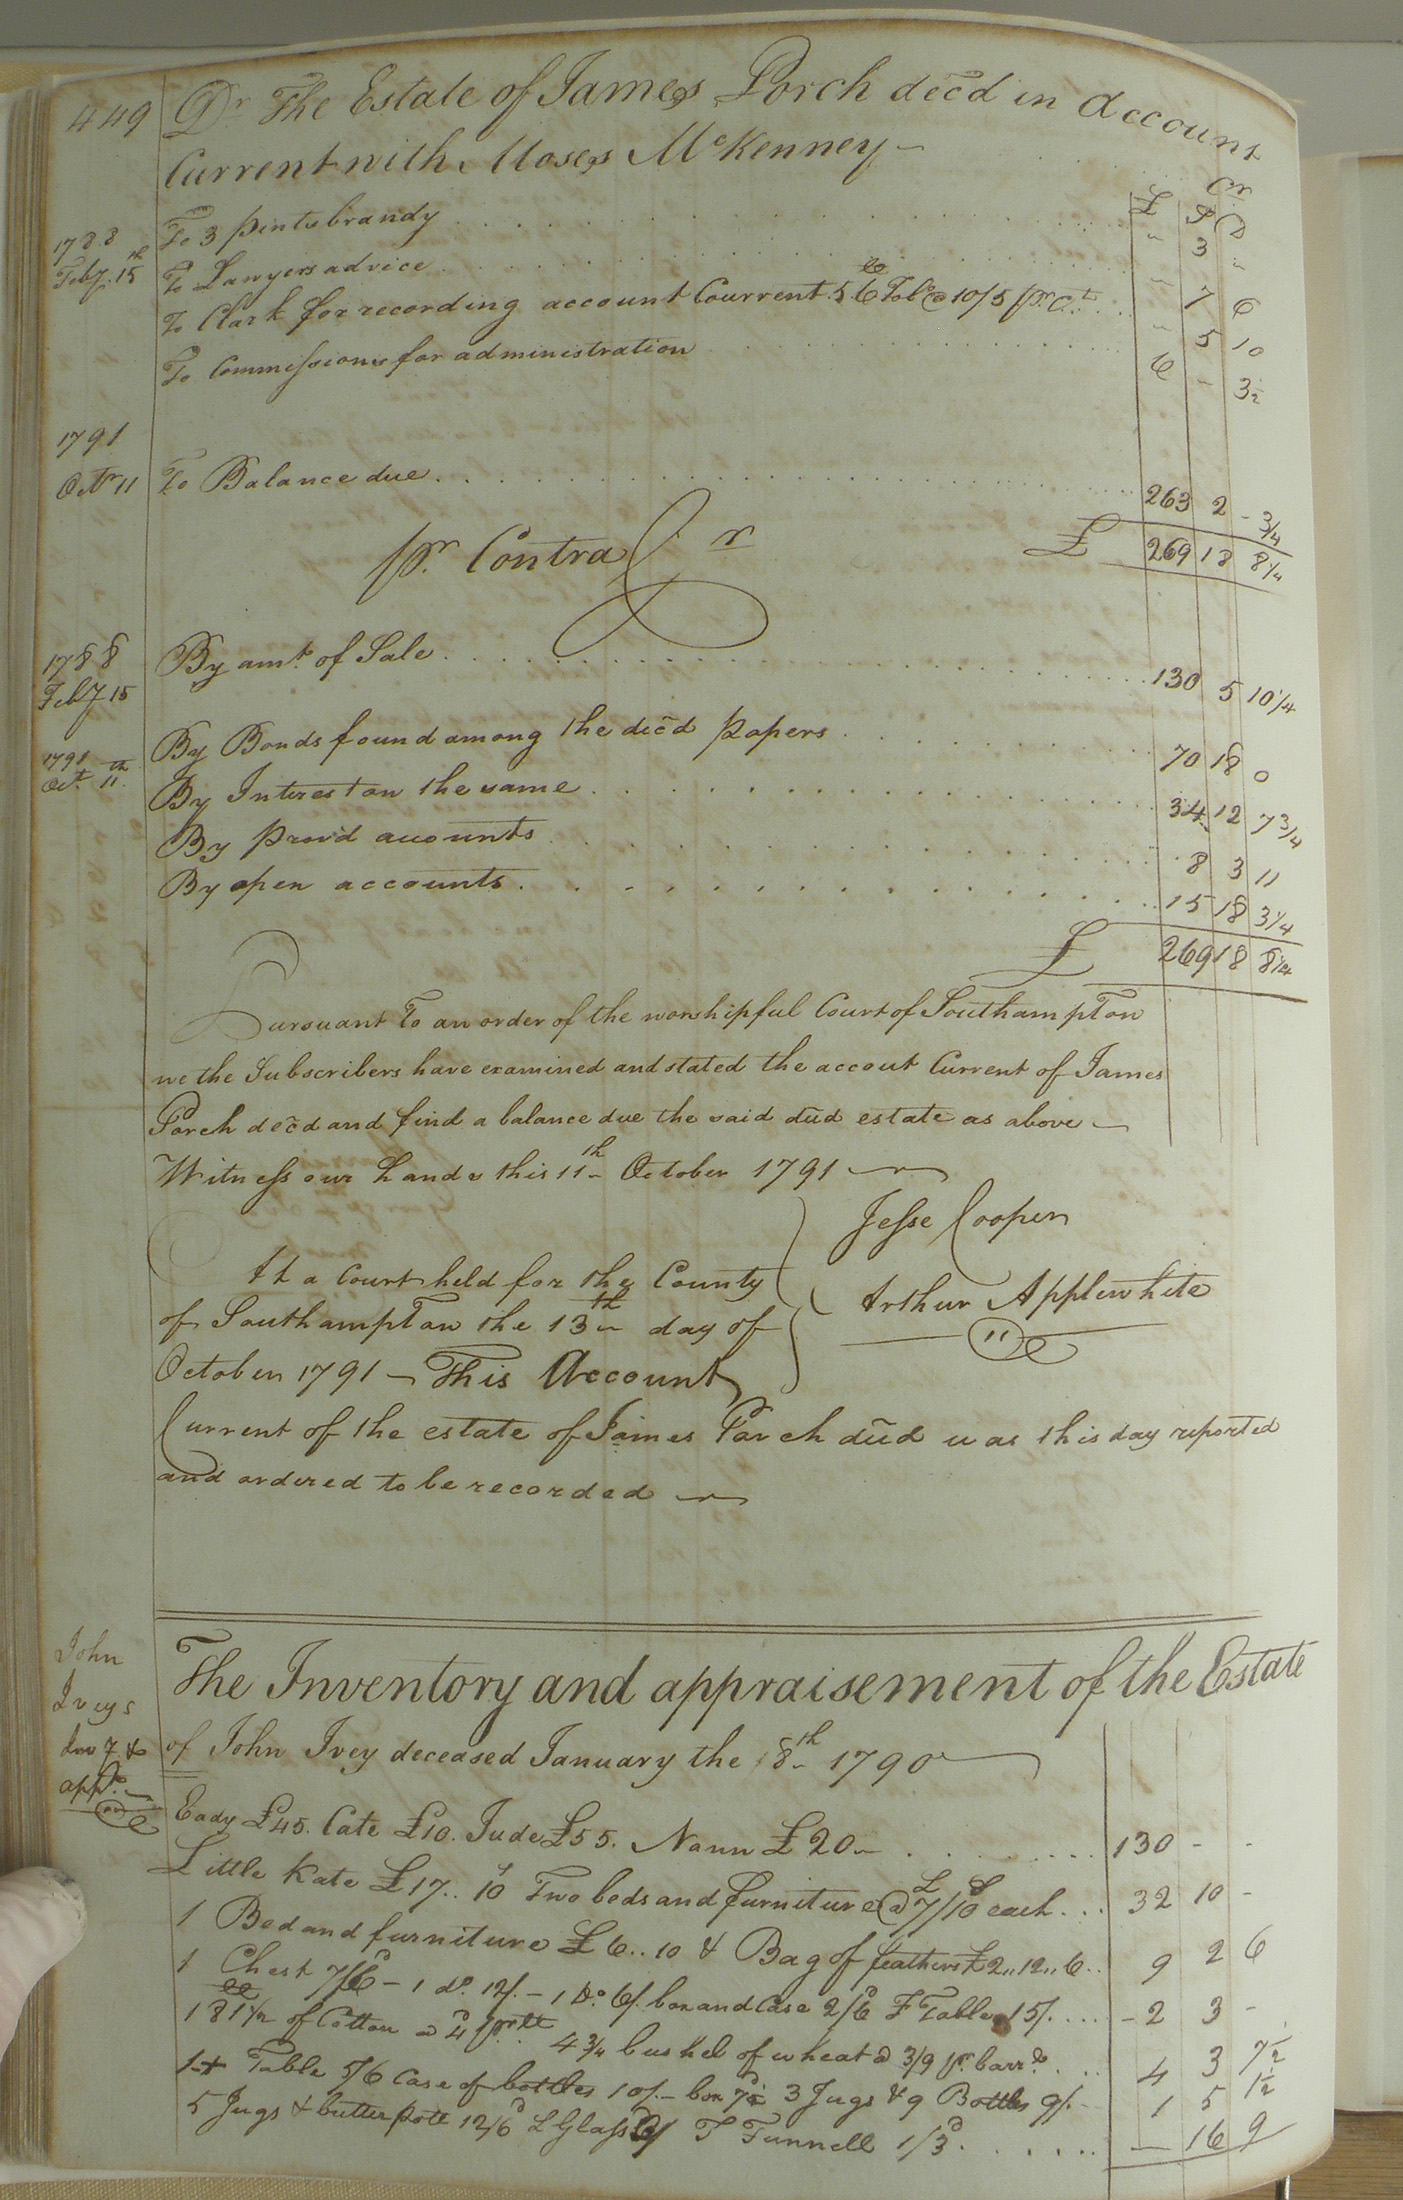 449 Dr The Estate of James Porch decd in Account
Current with Moses McKenney Cr
£ S D
1788 To 3 pints brandy " 3 "
Feby. 15th To Lawyers advice " 7 6
To Clark for recording account Courrent 56 lb Tobo @ 10/5 pr. Ct. " 5 10
To Commissions for administration 6 - 3 1/2
1791
Octr 11 To Balance due 263 2 - 3/4
£ 269 18 8 1/4
pr. Contra Cr
1788
Feby 15 By amt. of Sale 130 5 10 1/4
By Bonds found among the decd papers 70 18 0
1791
Oct. 11th By Interest on the same 34 12 7 3/4
By provd accounts 8 3 11
By open accounts 15 18 3 1/4
£ 269 18 8 1/4
Pursuant To an order of the worshipful Court of Southampton
we the Subscribers have examined and stated the accout Current of James
Porch decd and find a balance due the said decd estate as above
Witness our hands this 11th October 1791
Jesse Cooper
Arthur Applewhite
At a Court held for the County
of Southampton the 13th day of
October 1791 — This Account
Current of the estate of James Porch decd was this day reported
and ordered to be recorded
John
Iveys
Inv y. &
appt.
The Inventory and appraisement of the Estate
of John Ivey deceased January the 8th 1790
Eady £45. Cate £10. Jude £55. Nann £20 130 - -
Little Kate £17.. 10s Two beds and furniture @ £7/10s each 32 10 -
1 Bed and furniture £6..10 & Bag of feathers £2,,12,,6 9 2 6
1 Chest 7/6d - 1 do. 12/. - 1 Do. 6/. box and Case 2/6d F Table 15/. - 2 3 -
181 1/2 lb of Cotton @ 4d pr lb 4 3/4 bushel of wheat @ 3/9 pr. barr 4 3 7 1/2
1 Table 5/6 Case of bottles 10/- box 7 1/2d 3 Jugs & 9 Bottles 9/. - 1 5 1 1/2
5 Jugs & butter pott 12/6d L Glass T Funnell 1/3d — 16 9